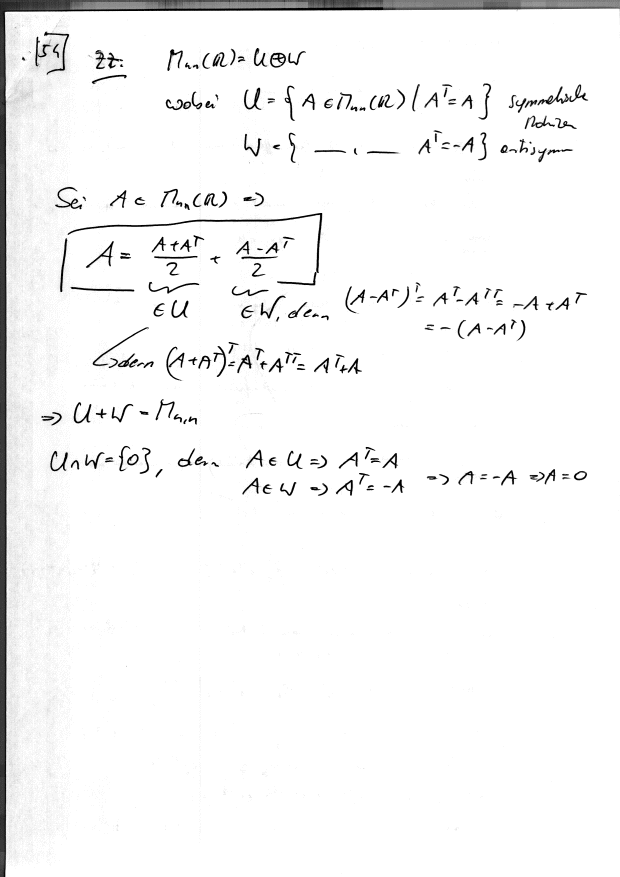 54 zz: Mₙₙ(ℝ) = U⊕W
wobei U = { A ∈ Mₙₙ(ℝ) | Aᵀ = A } symmetrische
Matrizen
W = { — " — Aᵀ = -A } antisymm
Sei A ∈ Mₙₙ(ℝ) =>
A = (A+Aᵀ)/2 + (A-Aᵀ)/2
∈U ∈W, denn (A-Aᵀ)ᵀ = Aᵀ-Aᵀᵀ = -A+Aᵀ
= -(A-Aᵀ)
denn (A+Aᵀ)ᵀ = Aᵀ+Aᵀᵀ = Aᵀ+A
=> U+W = Mₙ,ₙ
U∩W = {0}, denn A∈U => Aᵀ = A
A∈W => Aᵀ = -A => A = -A => A = 0